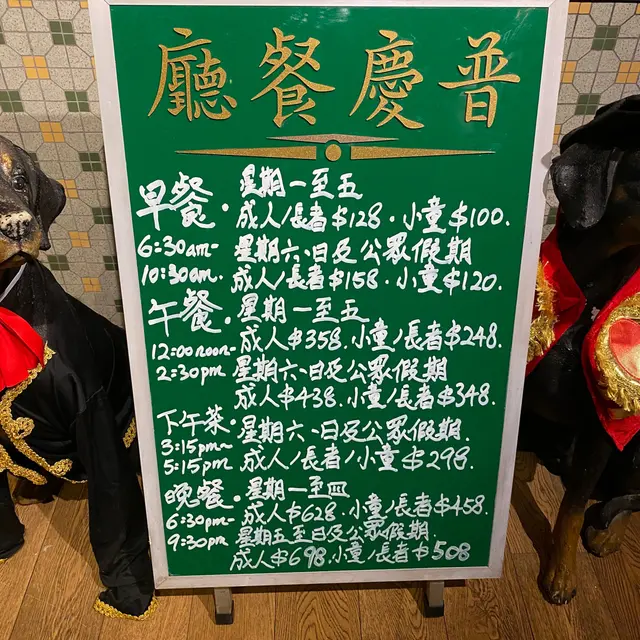 普慶餐廳
早餐．
星期一至五
成人/長者$128．小童$100．
6:30am-
10:30am.
星期六、日及公眾假期
成人/長者$158．小童$120．
午餐．
星期一至五
成人$358．小童/長者$248．
12:00noon-
2:30pm
星期六、日及公眾假期
成人$438．小童/長者$348．
下午茶．
3:15pm-
5:15pm
星期六、日及公眾假期．
成人/長者/小童$298．
晚餐．
星期一至四
成人$628．小童/長者$458．
6:30pm-
9:30pm
星期五至日及公眾假期
成人$698．小童/長者$508